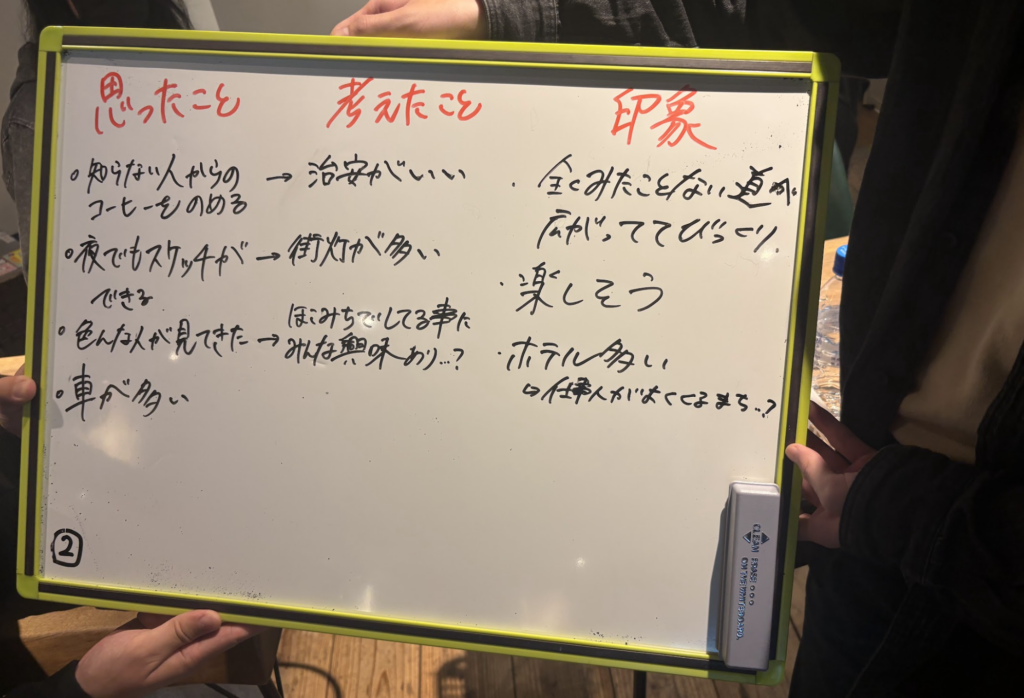 思ったこと
・知らない人からの
コーヒーをのめる
・夜でもスケッチが
できる
・色んな人が見てきた
・車が多い
②
考えたこと
→ 治安がいい
→ 街灯が多い
→ ほこみちでしてる事に
みんな興味あり…?
印象
・全くみたことない道が
広がっててびっくり
・楽しそう
・ホテル多い
↳仕事人がよくくるまち…?
CLEAN
ERASER